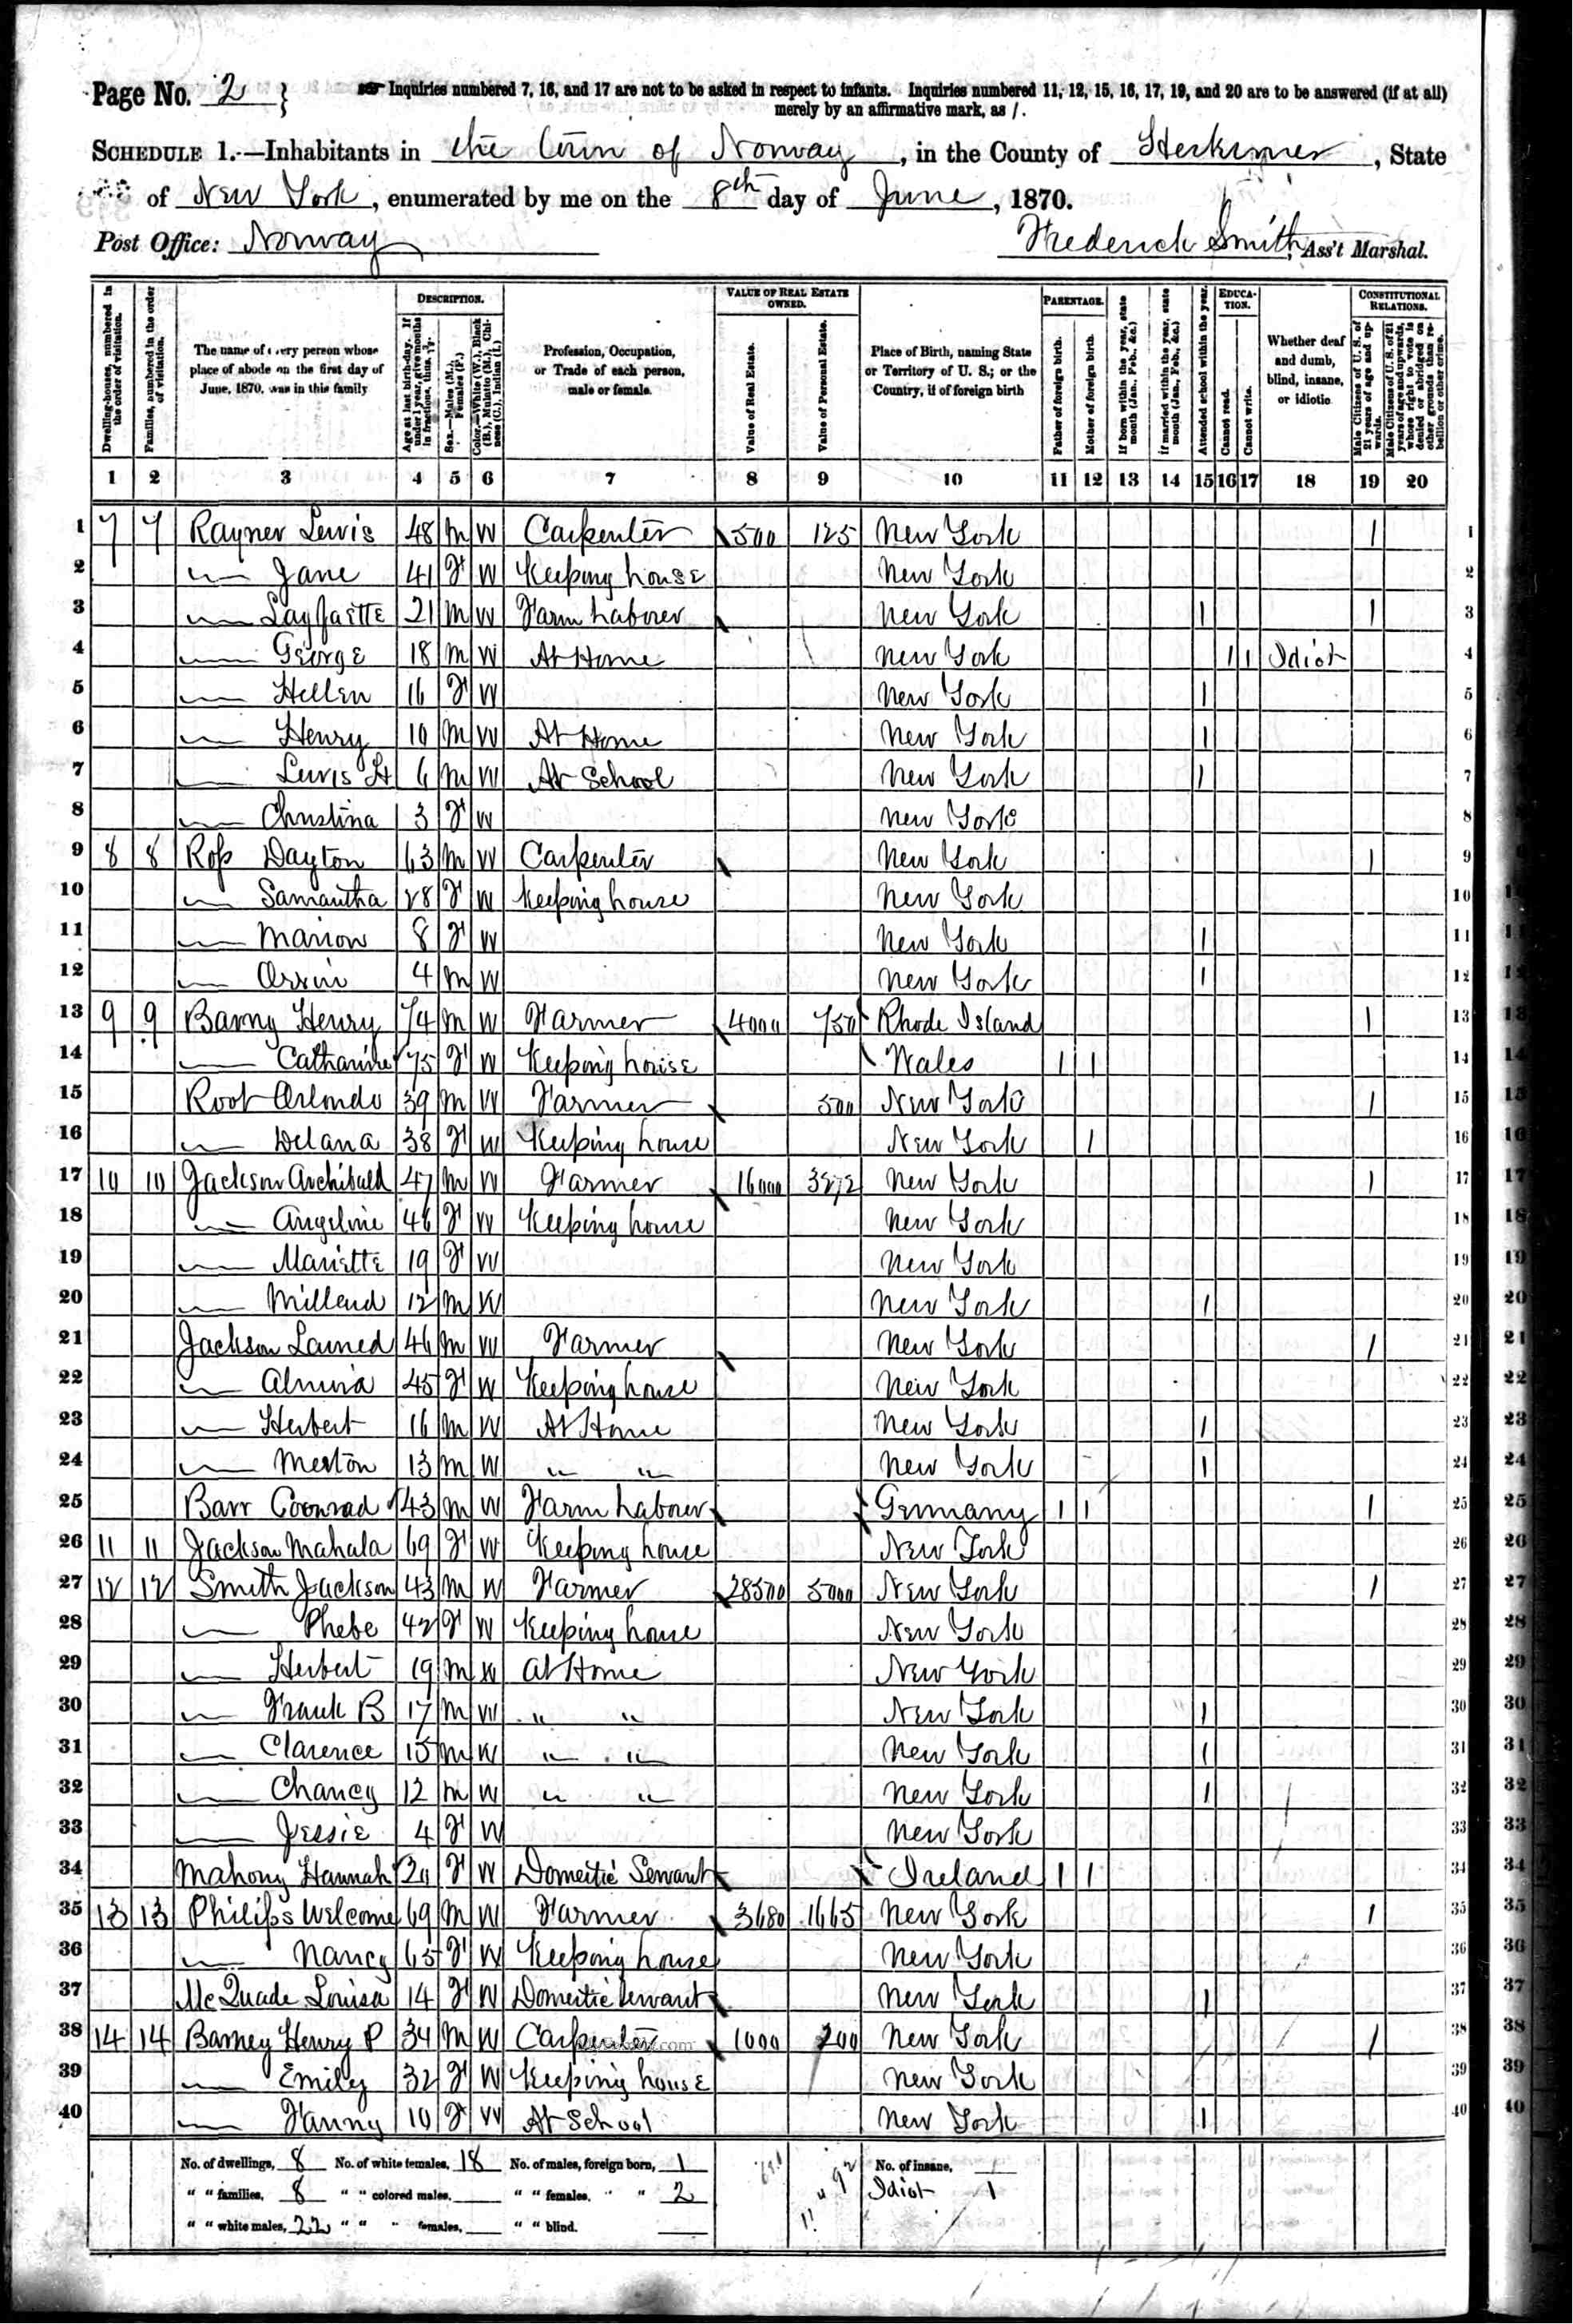 Page No. 2 } Inquiries numbered 7, 16, and 17 are not to be asked in respect to infants. Inquiries numbered 11, 12, 15, 16, 17, 19, and 20 are to be answered (if at all)
merely by an affirmative mark, as /.
SCHEDULE 1.—Inhabitants in the Town of Norway, in the County of Herkimer, State
of New York, enumerated by me on the 8th day of June, 1870.
Post Office: Norway Frederick Smith, Ass't Marshal.
Dwelling-houses, numbered in the order of visitation.
Families, numbered in the order of visitation.
The name of every person whose place of abode on the first day of June, 1870, was in this family
DESCRIPTION.
Age at last birth-day. If under 1 year, give months in fractions, thus,
Sex.—Males (M.), Females (F.)
Color.—White (W.), Black (B.), Mulatto (M.), Chinese (C.), Indian (I.)
Profession, Occupation, or Trade of each person, male or female.
VALUE OF REAL ESTATE OWNED.
Value of Real Estate.
Value of Personal Estate.
Place of Birth, naming State or Territory of U. S.; or the Country, if of foreign birth
PARENTAGE.
Father of foreign birth.
Mother of foreign birth.
If born within the year, state month (Jan., Feb., &c.)
If married within the year, state month (Jan., Feb., &c.)
Attended school within the year.
EDUCATION.
Cannot read.
Cannot write.
Whether deaf and dumb, blind, insane, or idiotic
CONSTITUTIONAL RELATIONS.
Male Citizens of U. S. of 21 years of age and upwards.
Male Citizens of U. S. of 21 years of age and upwards, whose right to vote is denied or abridged on other grounds than rebellion or other crime.
1 2 3 4 5 6 7 8 9 10 11 12 13 14 15 16 17 18 19 20
1 7 7 Rayner Lewis 48 M W Carpenter 500 125 New York 1 1
2 — Jane 41 F W Keeping house New York 2
3 — Layfaitte 21 M W Farm Laborer New York 1 1 3
4 — George 18 M W At Home New York 1 1 Idiot 4
5 — Hellen 16 F W New York 1 5
6 — Henry 10 M W At Home New York 1 6
7 — Lewis H 6 M W At School New York 1 7
8 — Christina 3 F W New York 8
9 8 8 Ross Dayton 63 M W Carpenter New York 1 9
10 — Samantha 28 F W Keeping house New York 10
11 — Marion 8 F W New York 1 11
12 — Orrin 4 M W New York 1 12
13 9 9 Barny Henry 74 M W Farmer 4000 750 Rhode Island 1 13
14 — Catharine 75 F W Keeping house Wales 1 1 14
15 Root Orlondo 39 M W Farmer 500 New York 1 15
16 — Delana 38 F W Keeping house New York 1 16
17 10 10 Jackson Archibald 47 M W Farmer 16000 3272 New York 1 17
18 — Angeline 46 F W Keeping house New York 18
19 — Mariette 19 F W New York 19
20 — Millerd 12 M W New York 1 20
21 Jackson Larned 46 M W Farmer New York 1 21
22 — Almira 45 F W Keeping house New York 22
23 — Herbert 16 M W At Home New York 1 23
24 — Merton 13 M W " " New York 1 24
25 Barr Coonrad 43 M W Farm Labourer Germany 1 1 1 25
26 11 11 Jackson Mahala 69 F W Keeping house New York 26
27 12 12 Smith Jackson 43 M W Farmer 28500 5000 New York 1 27
28 — Phebe 42 F W Keeping house New York 28
29 — Herbert 19 M W At Home New York 29
30 — Frank B 17 M W " " New York 1 30
31 — Clarence 15 M W " " New York 1 31
32 — Chancy 12 M W " " New York 1 32
33 — Jessie 4 F W New York 33
34 Mahony Hannah 20 F W Domestic Servant Ireland 1 1 34
35 13 13 Philips Welcome 69 M W Farmer 3680 1665 New York 1 35
36 — Nancy 65 F W Keeping house New York 36
37 McQuade Louisa 14 F W Domestic Servant New York 1 37
38 14 14 Barney Henry P 34 M W Carpenter 1000 200 New York 1 38
39 — Emily 32 F W Keeping house New York 39
40 — Fanny 10 F W At School New York 1 40
No. of dwellings, 8 No. of white females, 18 No. of males, foreign born, 1 No. of insane,
" " families, 8 " " colored males, " " females, " " 2 Idiot 1
" " white males, 22 " " " females, " " blind.